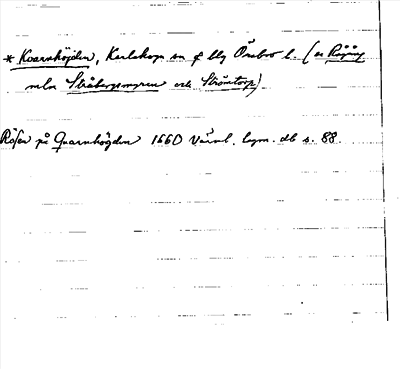 * Kvarnhöjden, Karlskoga sn o hg Örebro l. (se Rågång
mln Stråbergsmyren och Strömtorp)
Röse på Quarnhögden 1660 Värml. lzym. db s. 88.